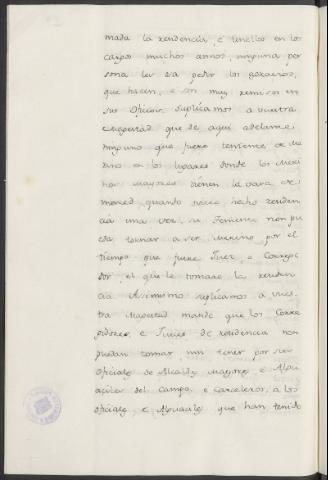 mada la rendencia, e tenellos en los
cargos muchos annos, ninguna per
sona les va pedir los
que hacen, e son muy remisos en
sus oficios. Suplicamos a vuestra
Magestad que de aqui adelante,
ninguno que fuere teniente de Me
rino en los lugares donde los Meri
nos mayores tienen la vara de
merced, quando oviere hecho residen
cia una vez, su Teniente non pu
eda tornar a ser Merino por el
tiempo que fuere Juez, e Corregi
dor, el que le tomare la residen
cia. Asimismo suplicamos a vues
tra Magestad mande que los Corre
gidores, e Juices de residencia non
puedan tomar nin tener por sus
Oficiales de Alcaldes Mayores, e Algu
aciles del Campo, e carceleros, a los
Oficiales, e Alguaciles que han tenido